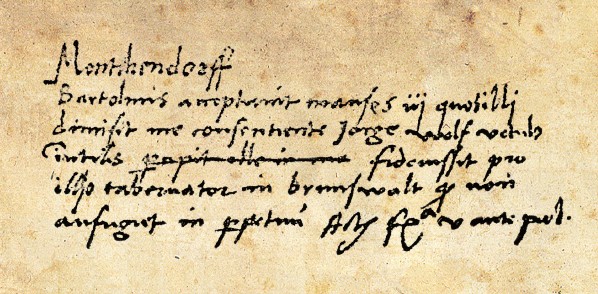 Montkendorff
Bartolmis acceptavit manses iij quos illi
dimisit me consentiente Jorge wolf
in fideiussit pro
illo tabernator in brunswalt qd non
aufugiet in ppetuu Act fxa v ante